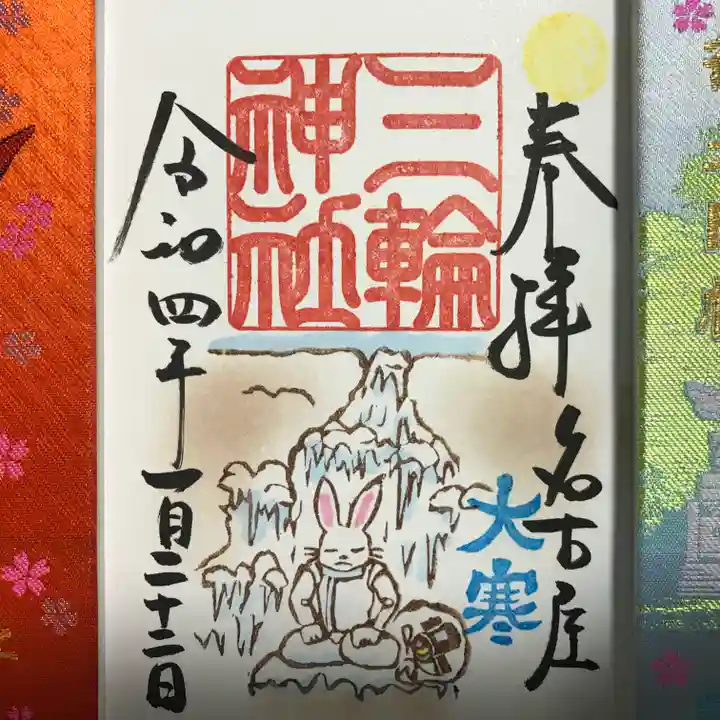 奉拝 名古屋
大寒
三輪
神社
令和四年一月二十二日